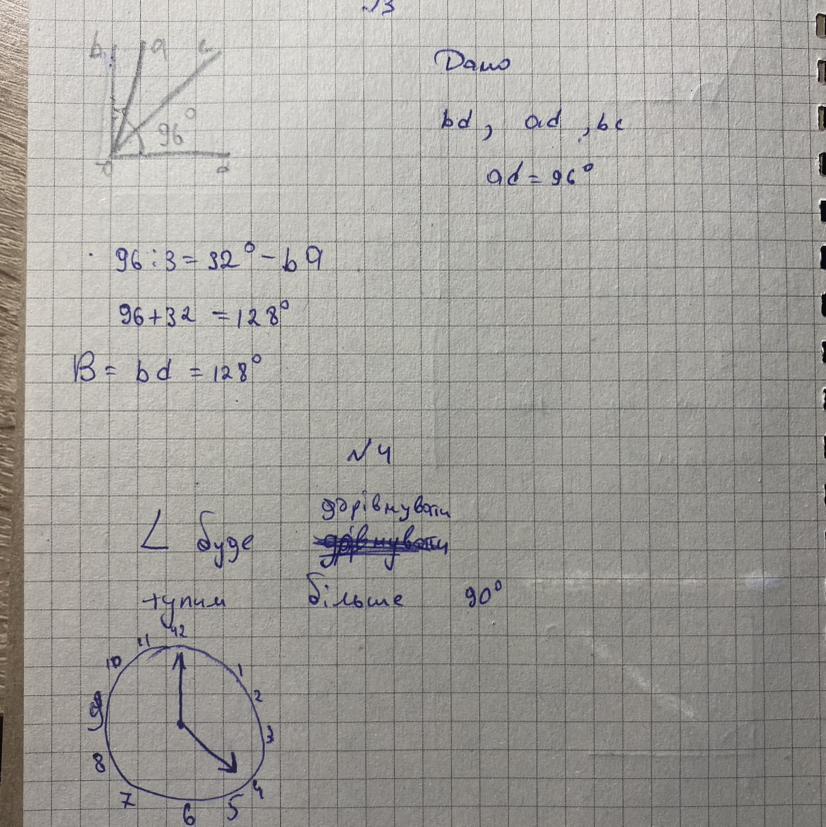 b a c
96°
d
Дано
bd, ad, bc
ad = 96°
96:3 = 32° - ba
96+32 = 128°
В = bd = 128°
№4
∠ буде дорівнувати
тупим більше 90°
12
11
10
1
2
9
3
8
4
7
6
5